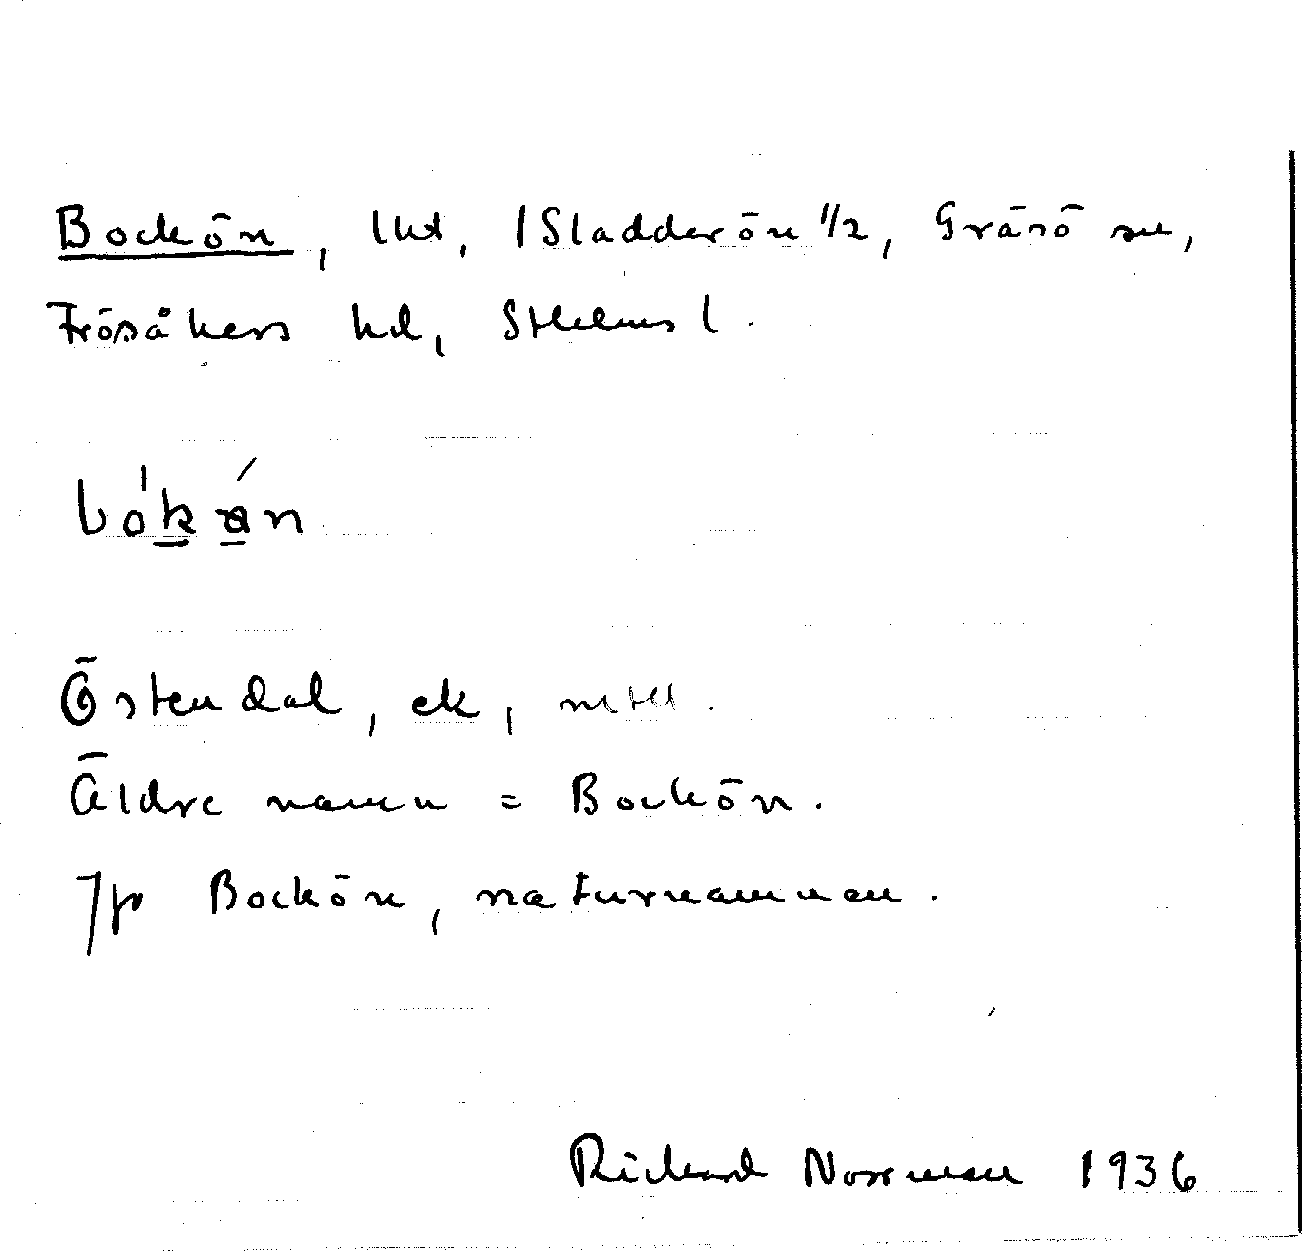 Bockön, lht, 1 Sladderön 1/2, Gräsö sn,
Frösåkers hd, Sthlms l.
Östendal, ek, mtll.
Äldre namn = Bockön.
Jfr Bockön, naturnamnen.
Rickard Norrman 1936